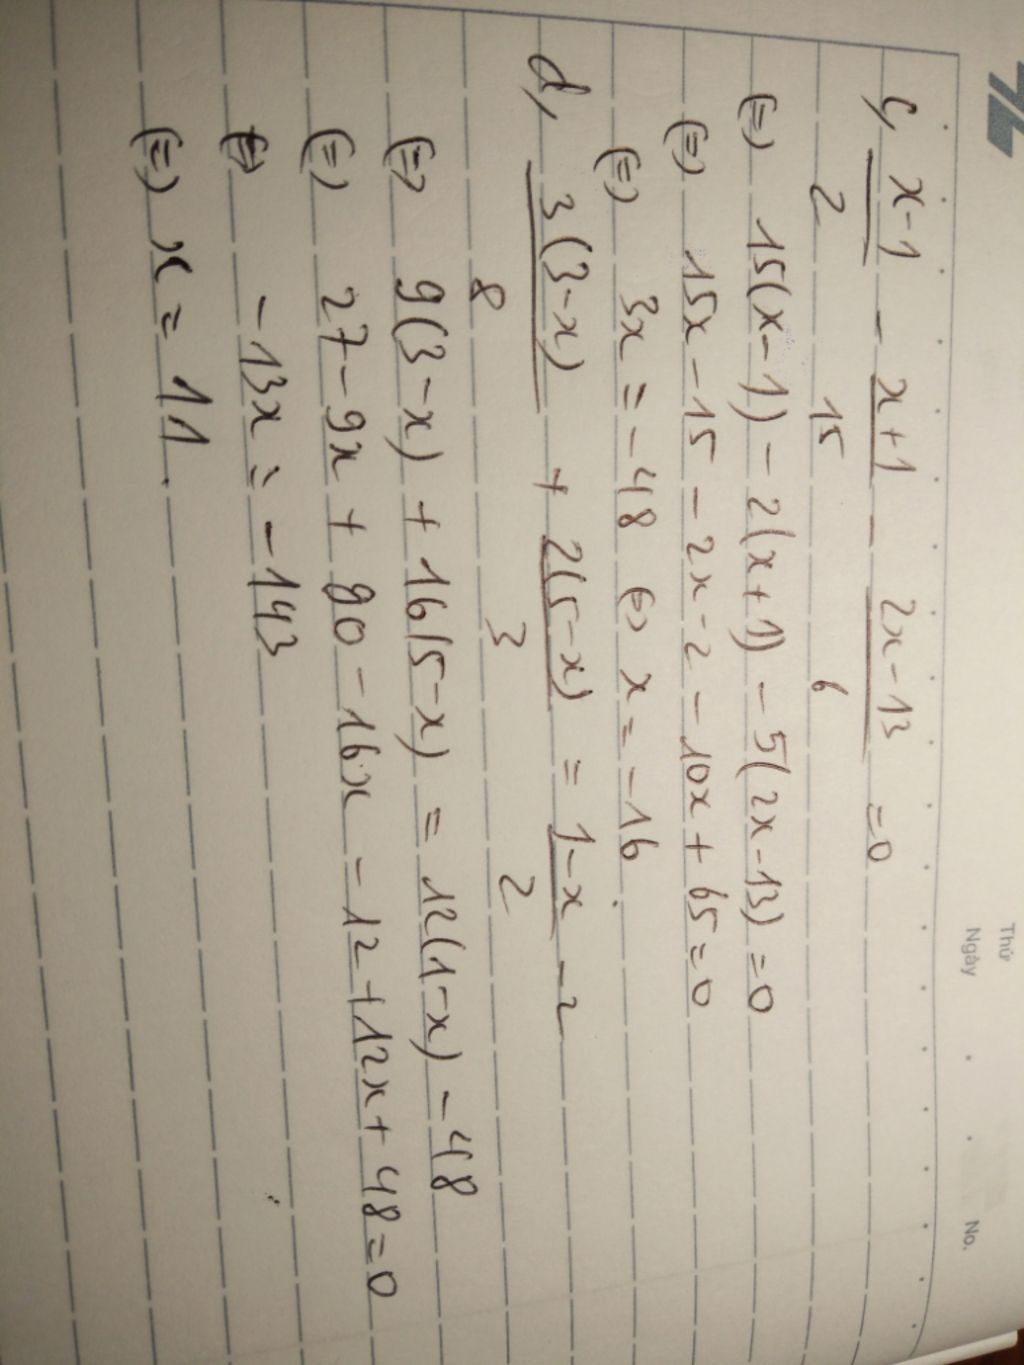 Thứ
Ngày
No.
c, x-1/2 - x+1/15 - 2x-13/6 = 0
(=) 15(x-1) - 2(x+1) - 5(2x-13) = 0
(=) 15x - 15 - 2x - 2 - 10x + 65 = 0
(=) 3x = -48 (=) x = -16.
d, 3(3-x)/8 + 2(5-x)/3 = 1-x/2 - 2
(=) 9(3-x) + 16(5-x) = 12(1-x) - 48
(=) 27 - 9x + 80 - 16x - 12 + 12x + 48 = 0
(=) -13x = -143
(=) x = 11.